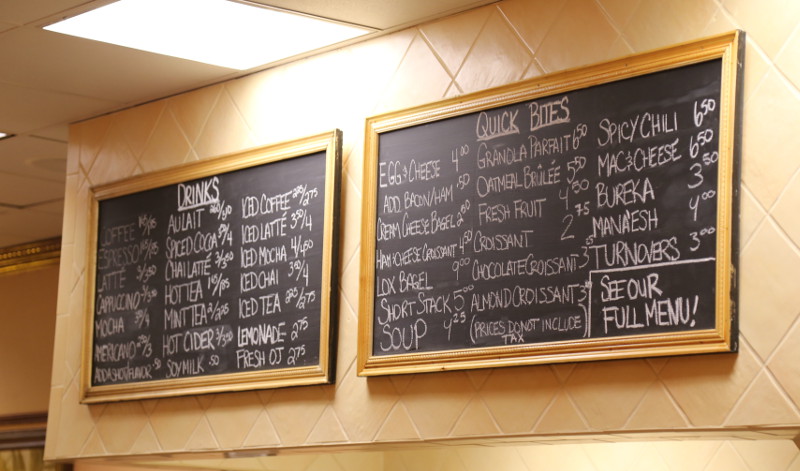 DRINKS
COFFEE
ESPRESSO
LATTE
CAPPUCCINO
MOCHA
AMERICANO
ADD A SHOT/FLAVOR .50
AU LAIT
SPICED COCOA
CHAI LATTE
HOT TEA
MINT TEA
HOT CIDER
SOY MILK .50
ICED COFFEE
ICED LATTE 350/4
ICED MOCHA 4/450
ICED CHAI
ICED TEA
LEMONADE 275
FRESH OJ 275
QUICK BITES
EGG & CHEESE 400
ADD BACON/HAM .50
CREAM CHEESE BAGEL
HAM & CHEESE CROISSANT
LOX BAGEL 900
SHORT STACK 500
SOUP 425
GRANOLA PARFAIT 650
OATMEAL BRÛLÉE 550
FRESH FRUIT
CROISSANT 275
CHOCOLATE CROISSANT
ALMOND CROISSANT
(PRICES DO NOT INCLUDE
TAX
SPICY CHILI 650
MAC & CHEESE 650
BUREKA 350
MANA'ESH 400
TURNOVERS 300
SEE OUR
FULL MENU!